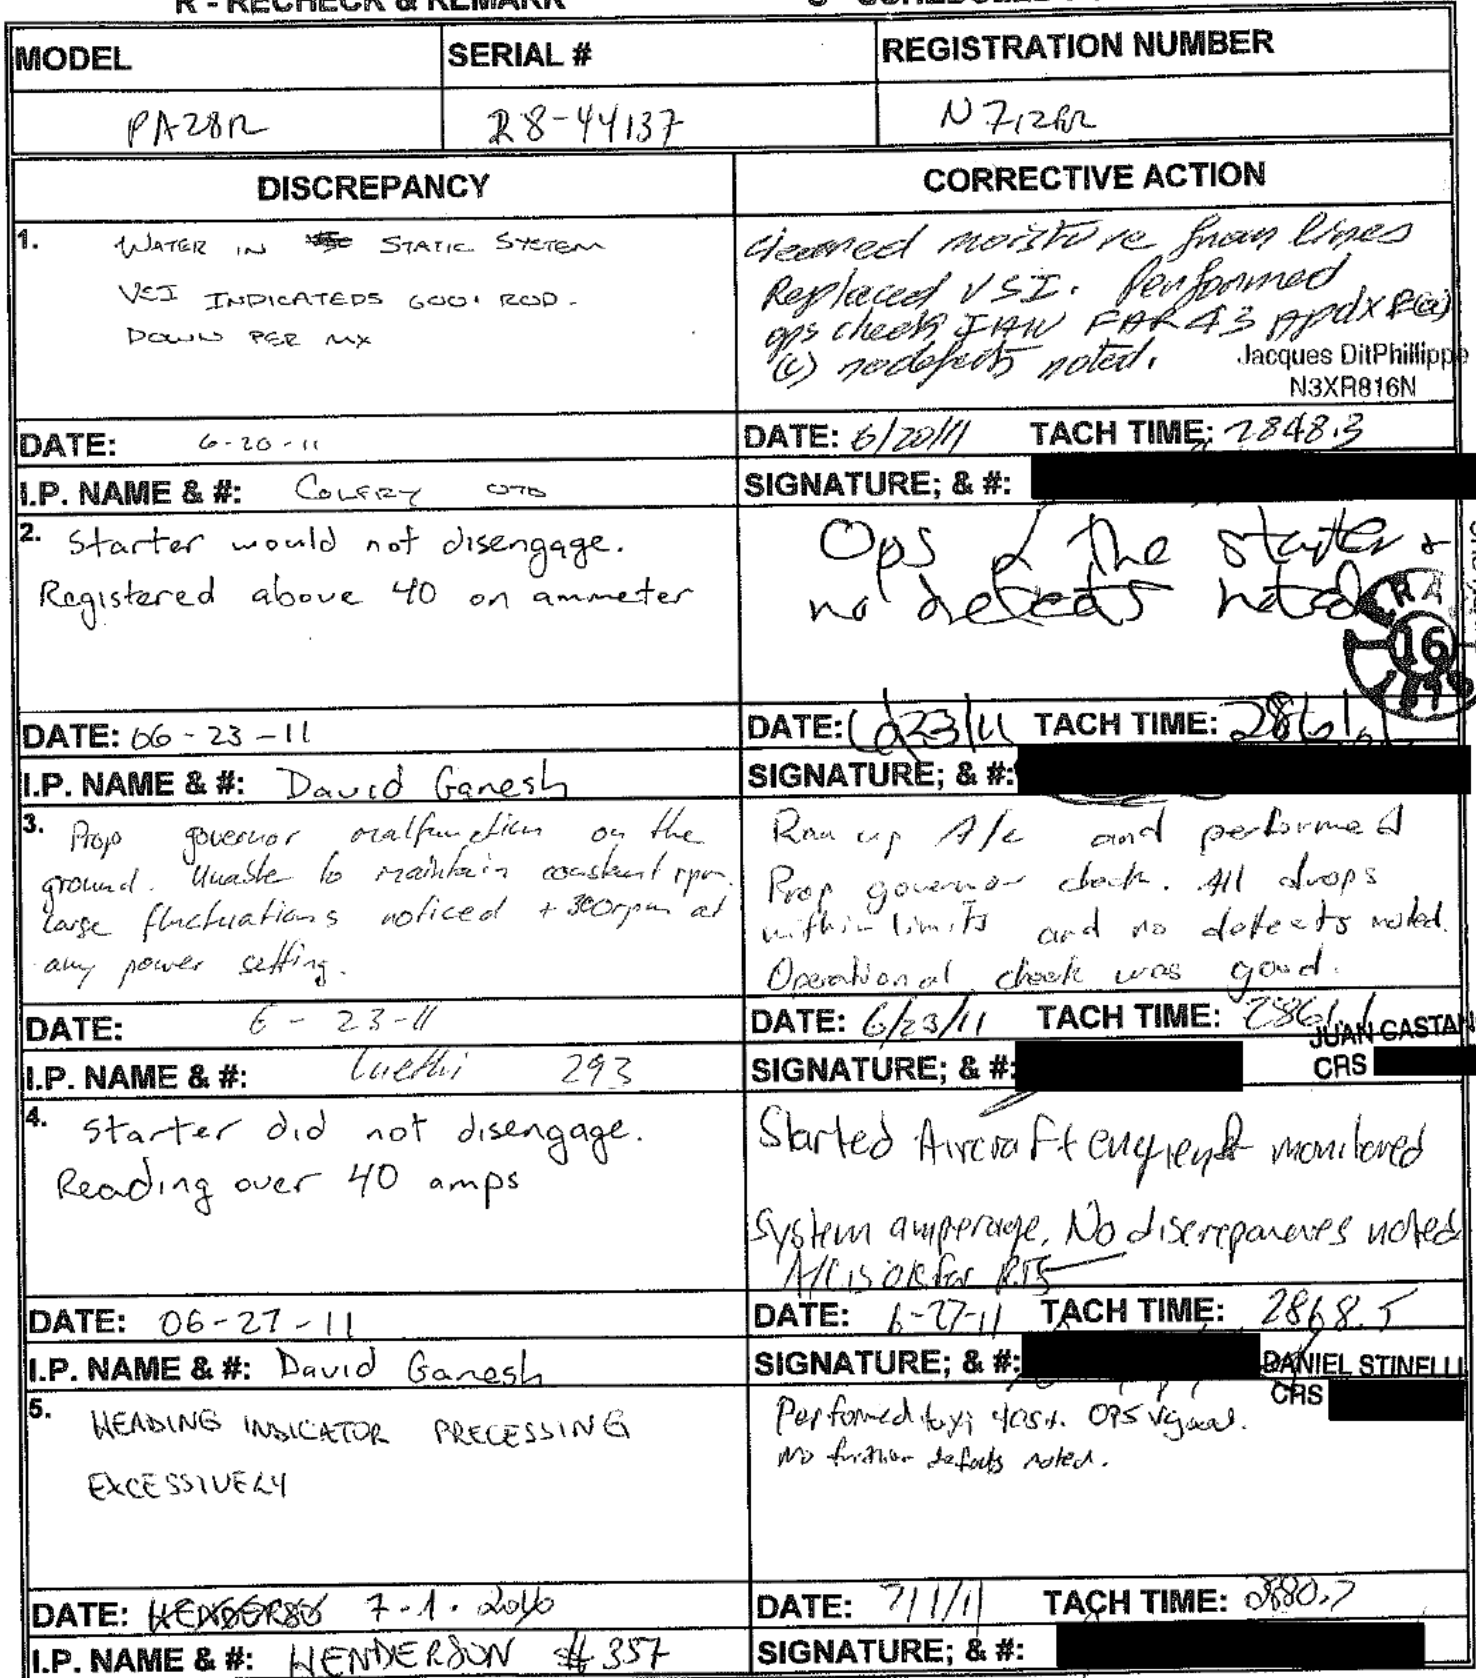 R - RECHECK & REMARK
MODEL SERIAL # REGISTRATION NUMBER
PA28R 28-44137 N712RR
DISCREPANCY CORRECTIVE ACTION
1. WATER IN STATIC SYSTEM
VSI INDICATEDS 600' ROD
DOWN PER MX
cleaned moisture from lines
Replaced VSI. Performed
ops check IAW FAR 43 Appdx E(a)
(c) no defects noted.
Jacques DitPhillippe
N3XR816N
DATE: 6-20-11
DATE: 6/20/11 TACH TIME: 2848.3
I.P. NAME & #:
SIGNATURE; & #:
2. Starter would not disengage.
Registered above 40 on ammeter
Ops the starter &
no defects noted
16
DATE: 06-23-11
DATE: 6/23/11 TACH TIME: 2861.1
I.P. NAME & #: David Ganesh
SIGNATURE; & #:
3. Prop governor malfunction on the
ground. Unable to maintain constant rpm.
large fluctuations noticed +300rpm at
any power setting.
Ran up A/c and performed
Prop governor check. All drops
within limits and no defects noted.
Operational check was good.
DATE: 6-23-11
DATE: 6/23/11 TACH TIME: 2861.1
JUAN CASTAN
I.P. NAME & #: Luethi 293
SIGNATURE; & #:
CRS
4. Starter did not disengage.
Reading over 40 amps
Started Aircraft engine & monitored
system amperage. No discrepancies noted
A/C is OK for RTS
DATE: 06-27-11
DATE: 6-27-11 TACH TIME: 2868.5
I.P. NAME & #: David Ganesh
SIGNATURE; & #:
DANIEL STINELLI
CRS
5. HEADING INDICATOR PRECESSING
EXCESSIVELY
Performed taxi test. OPS good.
No further defects noted.
DATE: 7-1-
DATE: 7/1/11 TACH TIME: 2880.7
I.P. NAME & #: HENDERSON #357
SIGNATURE; & #: